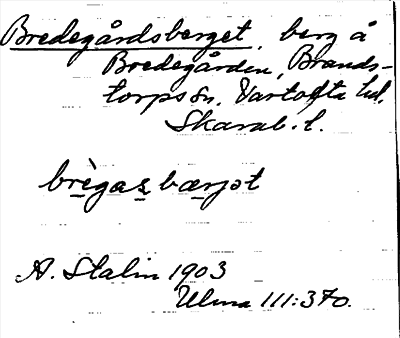 Bredegårdsberget, berg å
Bredegården, Brands-
torps sn. Vartofta hd.
Skarab. l.
brègas bærjət
A. Stalin 1903
Ulma 111:370.